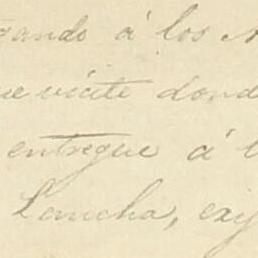 gando á los
que visite dond
entregue á l
Lancha, exij